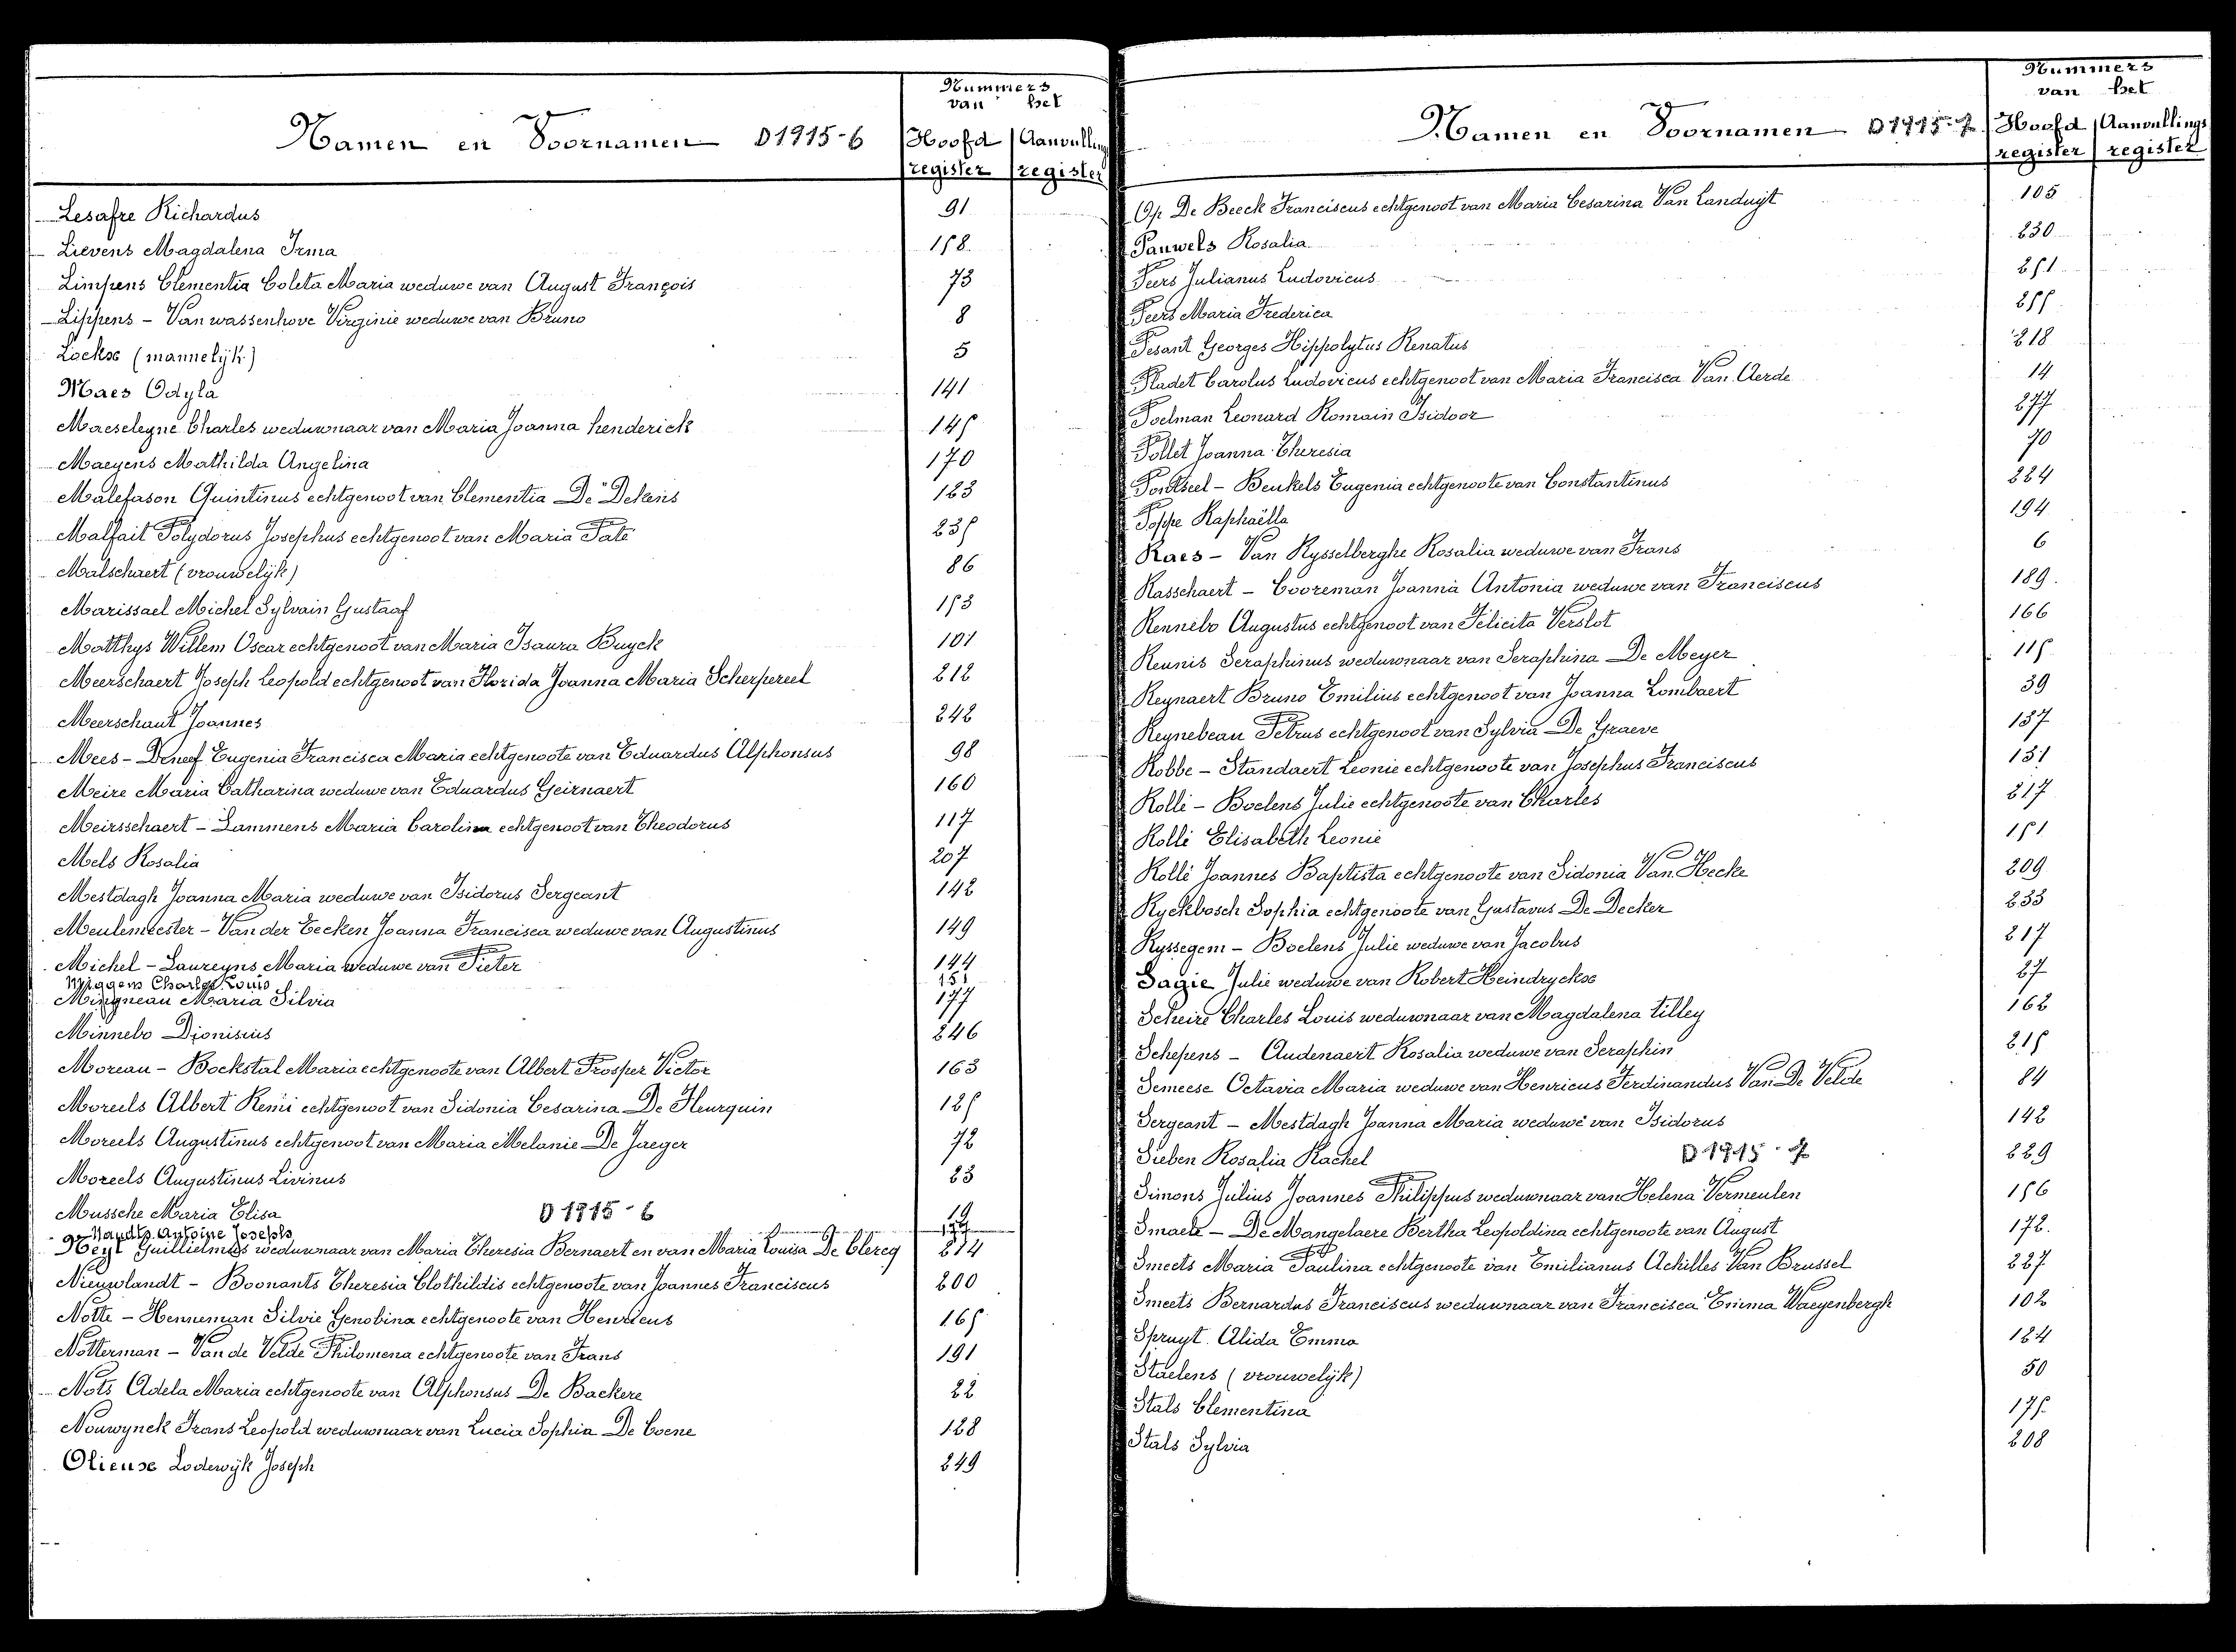 Nummers
van het
Namen en Voornamen D1915-6 Hoofd Aanvullings
register register
Lesafre Richardus 91
Lievens Magdalena Irma 158
Limpens Clementia Coleta Maria weduwe van August François 73
Lippens - Van wassenhove Virginie weduwe van Bruno 8
Lockx (mannelijk) 5
Maes Odyla 141
Maeseleyne Charles weduwnaar van Maria Joanna henderick 145
Maeyens Mathilda Angelina 170
Malefason Quintinus echtgenoot van Clementia De Dekens 123
Malfait Polydorus Josephus echtgenoot van Maria Paté 235
Malschaert (vrouwelijk) 86
Marissael Michel Sylvain Gustaaf 153
Matthys Willem Oscar echtgenoot van Maria Isaura Buyck 101
Meerschaert Joseph Leopold echtgenoot van Florida Joanna Maria Scherpereel 212
Meerschaut Joannes 242
Mees - Deneef Eugenia Francisca Maria echtgenoote van Eduardus Alphonsus 98
Meire Maria Catharina weduwe van Eduardus Geirnaert 160
Meirsschaert - Lammens Maria Carolina echtgenoot van Theodorus 117
Mels Rosalia 207
Mestdagh Joanna Maria weduwe van Isidorus Sergeant 142
Meulemeester - Van der Eecken Joanna Francisca weduwe van Augustinus 149
Michel - Laureyns Maria weduwe van Pieter 144
Miggens Charles Louis 151
Mingneau Maria Silvia 177
Minnebo Dionisius 246
Moreau - Bockstal Maria echtgenoote van Albert Prosper Victor 163
Moreels Albert Remi echtgenoot van Sidonia Cesarina De Heurquin 125
Moreels Augustinus echtgenoot van Maria Melanie De Jaeger 72
Moreels Augustinus Livinus 23
Mussche Maria Elisa D1915-6 19
Naudts Antoine Josephs
Neyt Guillielmus weduwnaar van Maria Theresia Bernaert en van Maria Louisa De Clercq 214
Nieuwlandt - Boonants Theresia Clothildis echtgenoote van Joannes Franciscus 200
Notte - Henneman Silvie Genobina echtgenoote van Henricus 165
Notterman - Van de Velde Philomena echtgenoote van Frans 191
Nots Adela Maria echtgenoote van Alphonsus De Backere 22
Nouwynck Frans Leopold weduwnaar van Lucia Sophia De Coene 128
Olieuse Lodewijk Joseph 249
Nummers
van het
Namen en Voornamen D1915-7 Hoofd Aanvullings
register register
Op De Beeck Franciscus echtgenoot van Maria Cesarina Van Landuyt 105
Pauwels Rosalia 230
Peers Julianus Ludovicus 251
Peers Maria Frederica 255
Pesant Georges Hippolytus Renatus 218
Pladet Carolus Ludovicus echtgenoot van Maria Francisca Van Aerde 14
Poelman Leonard Romain Isidoor 277
Pollet Joanna Theresia 70
Pontseel - Beukels Eugenia echtgenoote van Constantinus 224
Poppe Raphaëlla 194
Raes - Van Rysselberghe Rosalia weduwe van Frans 6
Rasschaert - Cooreman Joanna Antonia weduwe van Franciscus 189
Rennebo Augustus echtgenoot van Felicita Verslot 166
Reunis Seraphinus weduwnaar van Seraphina De Meyer 115
Reynaert Bruno Emilius echtgenoot van Joanna Lombaert 39
Reynebeau Petrus echtgenoot van Sylvia De Graeve 137
Robbe - Standaert Leonie echtgenoote van Josephus Franciscus 131
Rolli - Boelens Julie echtgenoote van Charles 217
Rolli Elisabeth Leonie 151
Rolli Joannes Baptista echtgenoote van Sidonia Van Hecke 209
Ryckbosch Sophia echtgenoote van Gustavus De Decker 233
Ryssegem - Boelens Julie weduwe van Jacobus 217
Sagie Julie weduwe van Robert Heindryckx 27
Scheire Charles Louis weduwnaar van Magdalena tilley 162
Schepens - Audenaert Rosalia weduwe van Seraphin 215
Semeese Octavia Maria weduwe van Henricus Ferdinandus Van De Velde 84
Sergeant - Mestdagh Joanna Maria weduwe van Isidorus 142
Sieben Rosalia Rachel D1915-7 229
Simons Julius Joannes Philippus weduwnaar van Helena Vermeulen 156
Smaele - De Mangelaere Bertha Leopoldina echtgenoote van August 172
Smeets Maria Paulina echtgenoote van Emilianus Achilles Van Brussel 227
Smeets Bernardus Franciscus weduwnaar van Francisca Emma Waeyenbergh 102
Spruyt Alida Emma 124
Staelens (vrouwelijk) 50
Stals Clementina 175
Stals Sylvia 208